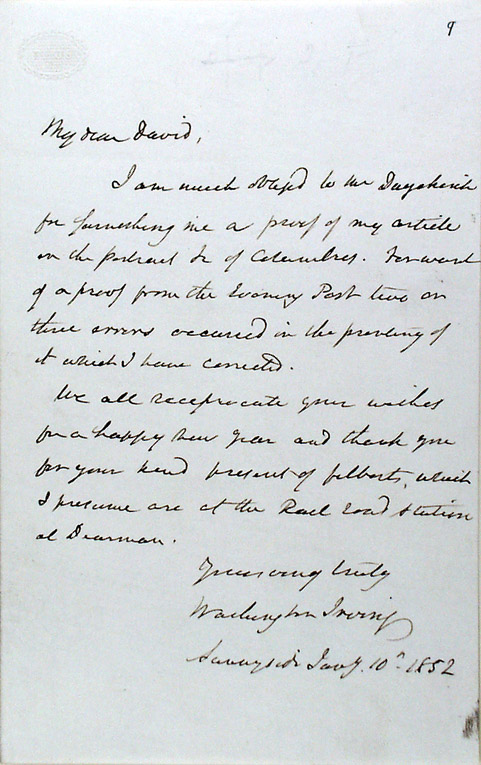 9
My dear David,
I am much obliged to Mr Duyckinck
for furnishing me a proof of my article
on the portrait &c of Columbus. For want
of a proof from the Evening Post two or
three errors occurred in the printing of
it which I have corrected.
We all reciprocate your wishes
for a happy new year and thank you
for your kind present of filberts, which
I presume are at the Rail road station
at Dearman.
Yours very truly
Washington Irving
Sunnyside Jany. 10th 1852